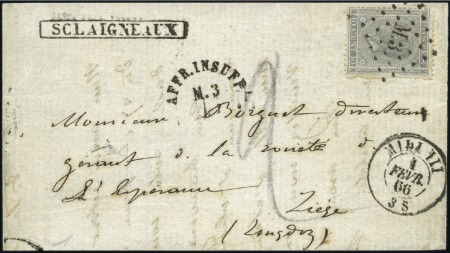 SCLAIGNEAUX
AFFR. INSUFF.
M. 3
M III
2
Monsieur Borguet, directeur
gérant de la société
L'Espérance
Liége
(Longdoz)
MIDI III
4
FEVR.
66
3 S